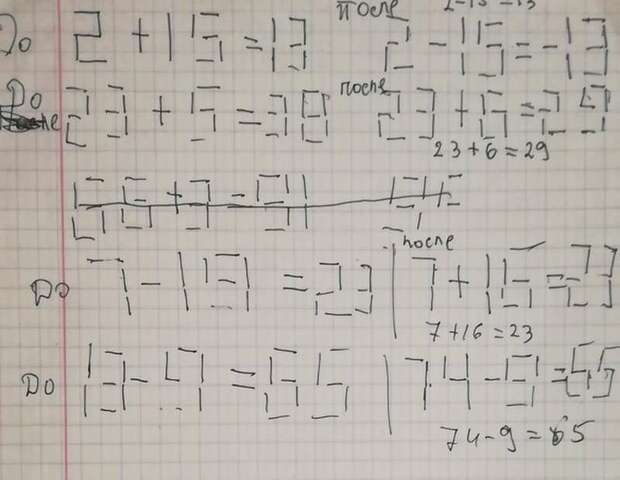 2-15=-13
До 2 + 15 = 13 после 2 - 15 = -13
До 23 + 5 = 38 после 23 + 6 = 29
23 + 6 = 29
после
До 7 - 18 = 23 7 + 16 = 23
7 + 16 = 23
До 19 - 9 = 65 74 - 9 = 65
74 - 9 = 65